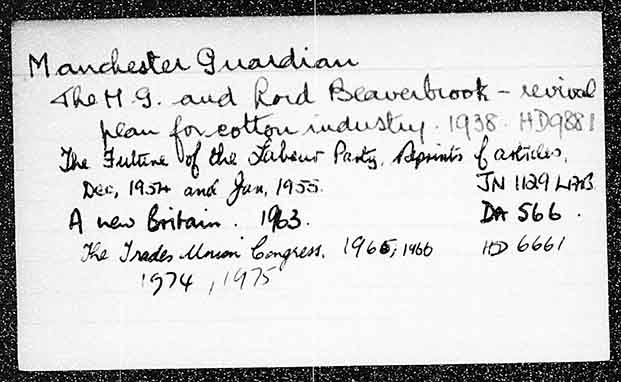 Manchester Guardian
The M.G. and Lord Beaverbrook - revival
plan for cotton industry. 1938. HD9881
The Future of the Labour Party. Reprints of articles,
Dec, 1954 and Jan, 1955. JN 1129 L17B
A new Britain. 1963. DA 566.
The Trades Union Congress. 1965, 1966 HD 6661
1974, 1975